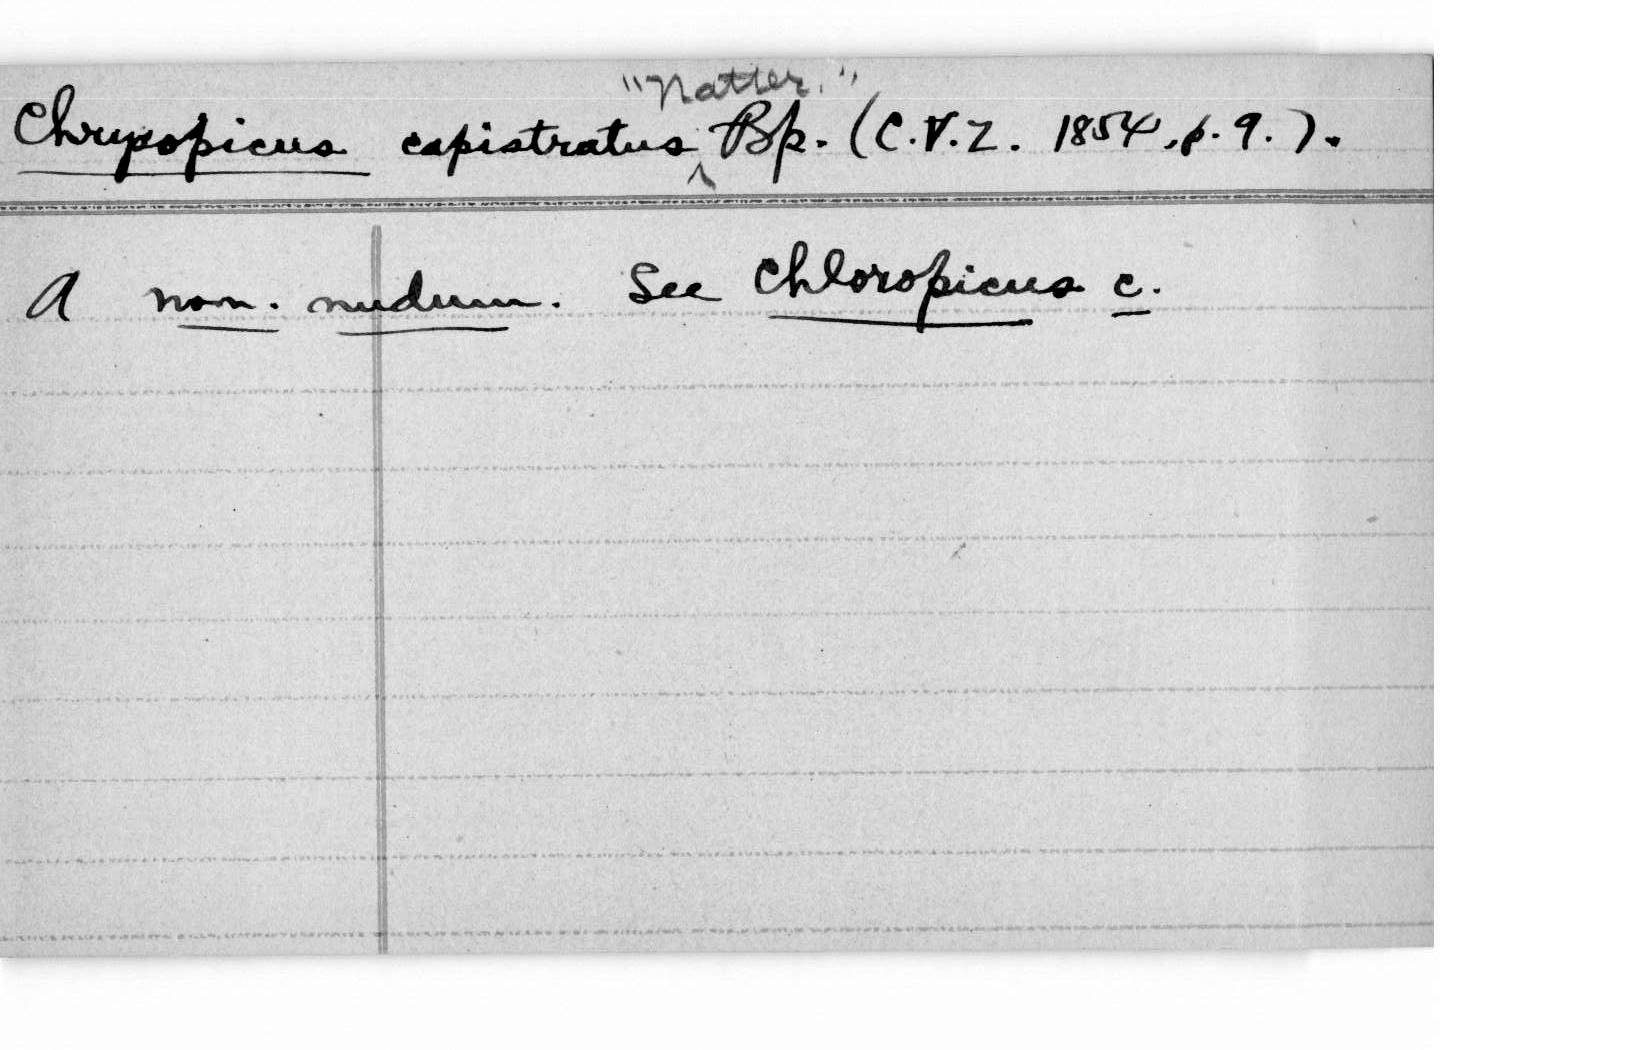 "Natter."
Chrysopicus capistratus ^ Bp. (C.V.Z. 1854, p. 9.).
A nom. nudum. See Chloropicus c.